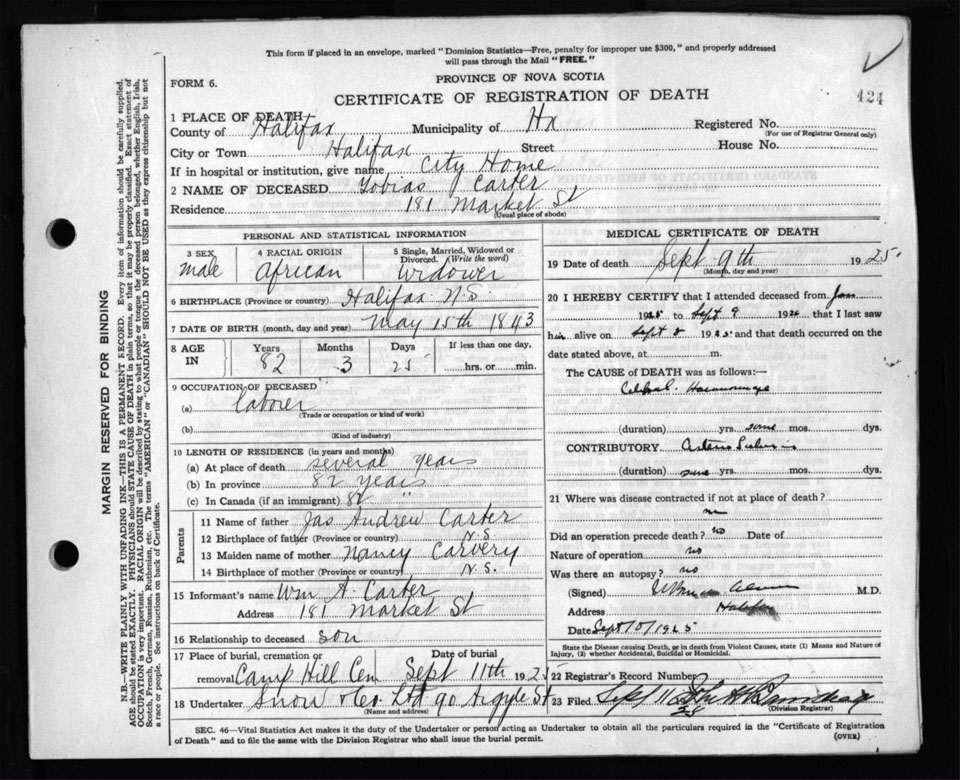 This form if placed in an envelope, marked "Dominion Statistics—Free, penalty for improper use $300," and properly addressed
will pass through the Mail "FREE."
FORM 6.
PROVINCE OF NOVA SCOTIA
CERTIFICATE OF REGISTRATION OF DEATH
424
1 PLACE OF DEATH
County of Halifax Municipality of Hx Registered No.
(For use of Registrar General only)
City or Town Halifax Street House No.
If in hospital or institution, give name City Home
2 NAME OF DECEASED Tobias Carter
Residence 181 Market St
(Usual place of abode)
PERSONAL AND STATISTICAL INFORMATION
3 SEX male
4 RACIAL ORIGIN African
5 Single, Married, Widowed or Divorced. (Write the word) Widower
6 BIRTHPLACE (Province or country) Halifax N.S.
7 DATE OF BIRTH (month, day and year) May 15th 1843
8 AGE IN Years 82 Months 3 Days 25 If less than one day, hrs. or min.
9 OCCUPATION OF DECEASED
(a) laborer
(Trade or occupation or kind of work)
(b)
(Kind of industry)
10 LENGTH OF RESIDENCE (in years and months)
(a) At place of death several years
(b) In province 82 years
(c) In Canada (if an immigrant) 82 "
Parents
11 Name of father Jas Andrew Carter
12 Birthplace of father (Province or country) N.S.
13 Maiden name of mother Nancy Carvery
14 Birthplace of mother (Province or country) N.S.
15 Informant's name Wm A. Carter
Address 181 Market St
16 Relationship to deceased son
17 Place of burial, cremation or removal Camp Hill Cem
Date of burial Sept 11th 1925
18 Undertaker Snow & Co. Ltd 90 Argyle St
(Name and address)
MEDICAL CERTIFICATE OF DEATH
19 Date of death Sept 9th 1925
(Month, day and year)
20 I HEREBY CERTIFY that I attended deceased from Jan
1925 to Sept 9 192 that I last saw
him alive on Sept 8 1925 and that death occurred on the
date stated above, at m.
The CAUSE of DEATH was as follows:—
(duration) yrs. mos. dys.
CONTRIBUTORY
(duration) yrs. mos. dys.
21 Where was disease contracted if not at place of death?
Did an operation precede death? no Date of
Nature of operation no
Was there an autopsy? no
(Signed) M.D.
Address Halifax
Date Sept 10/1925
State the Disease causing Death, or in death from Violent Causes, state (1) Means and Nature of
Injury, (2) whether Accidental, Suicidal or Homicidal.
22 Registrar's Record Number
23 Filed Sept 11
25
(Division Registrar)
SEC. 46—Vital Statistics Act makes it the duty of the Undertaker or person acting as Undertaker to obtain all the particulars required in the "Certificate of Registration
of Death" and to file the same with the Division Registrar who shall issue the burial permit.
(OVER)
MARGIN RESERVED FOR BINDING
N.B.—WRITE PLAINLY WITH UNFADING INK—THIS IS A PERMANENT RECORD. Every item of information should be carefully supplied.
AGE should be stated EXACTLY. PHYSICIANS should STATE CAUSE OF DEATH in plain terms, so that it may be properly classified. Exact statement of
OCCUPATION is very important. RACIAL ORIGIN will be described by stating to what people or tongue the deceased person belonged, whether English, Irish,
Scotch, French, German, Russian, Ruthenian, etc. The terms "AMERICAN" or "CANADIAN" SHOULD NOT BE USED as they express citizenship but not
a race or people. See instructions on back of Certificate.